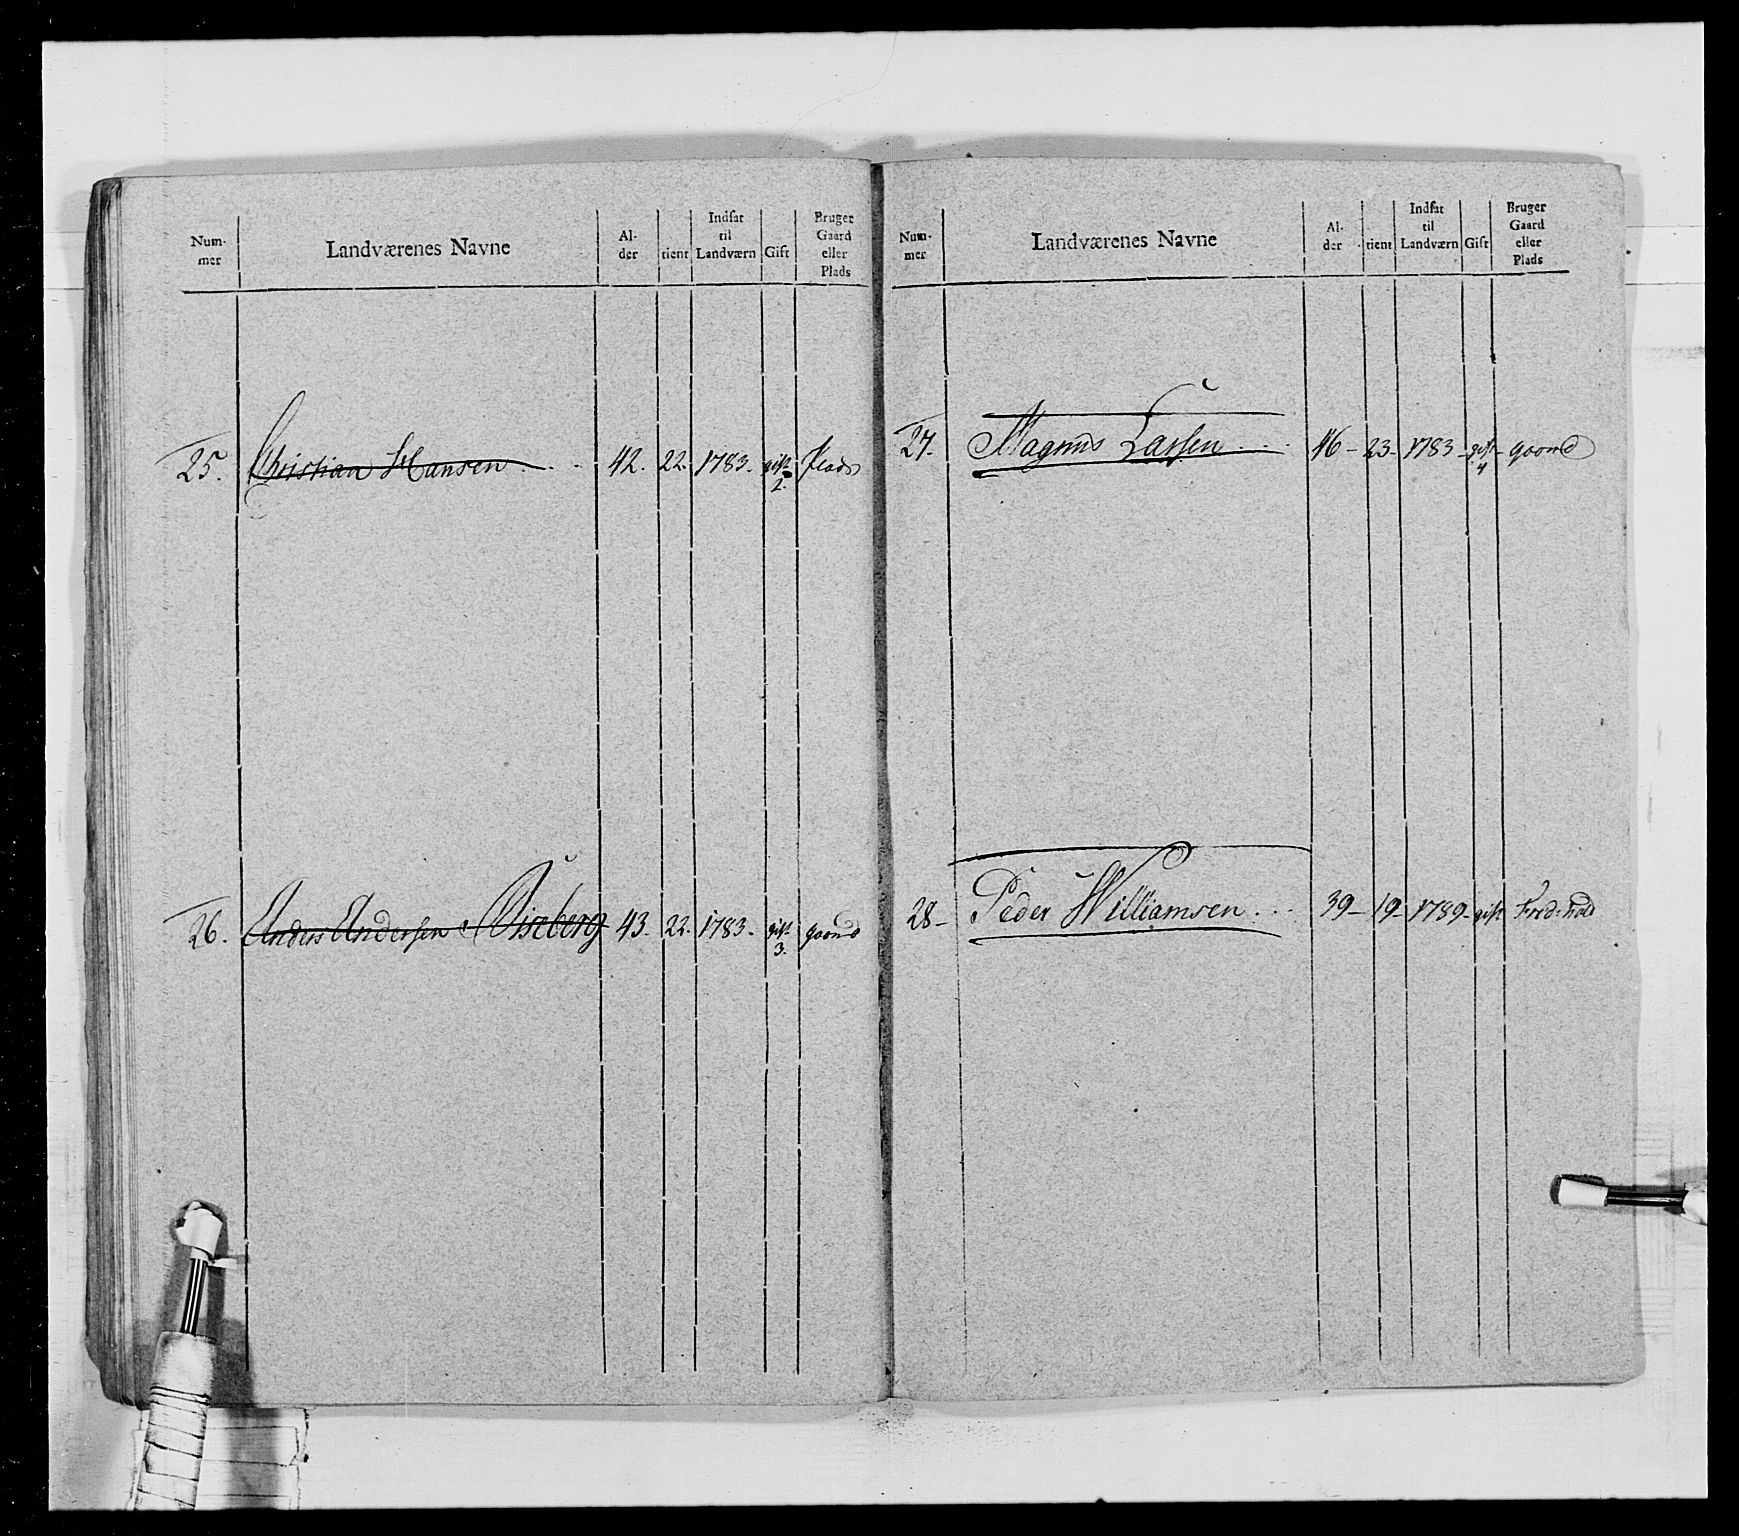 Num-
mer
Landværenes Navne
Al-
der
tient
Indsat
til
Landværn
Gift
Bruger
Gaard
eller
Plads
25. Christian Hansen . . 42. 22. 1783. gift 2. Plads
26. Anders Andersen 43. 22. 1783. gift 3. gaard
Num-
mer
Landværenes Navne
Al-
der
tient
Indsat
til
Landværn
Gift
Bruger
Gaard
eller
Plads
27. Magnus Larsen . . . 46 - 23 - 1783 - gift 4 - gaard
28 - Peder Williamsen . . . 39 - 19 - 1789 - gift